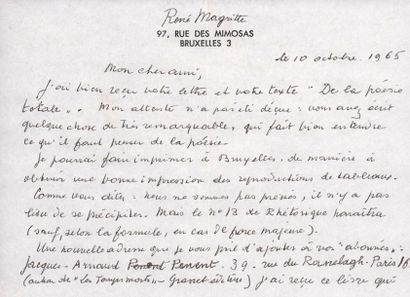 René Magritte
97, RUE DES MIMOSAS
BRUXELLES 3
le 10 octobre 1965
Mon cher ami,
J'ai bien reçu votre lettre et votre texte "De la poésie
totale". Mon attente n'a pas été déçue : vous avez écrit
quelque chose de très remarquable, qui fait bien entendre
ce qu'il faut penser de la poésie.
Je pourrai faire imprimer à Bruxelles, de manière à
obtenir une bonne impression des reproductions de tableaux.
Comme vous dites : nous ne sommes pas pressés, il n'y a pas
lieu de se précipiter. Mais le n° 13 de Rhétorique paraîtra
(sauf, selon la formule, en cas de force majeure).
Une nouvelle adresse que je vous prie d'ajouter à vos "abonnés" :
Jacques - Arnaud Penent. 39 - rue du Ranelagh - Paris 16
(auteur de "les Temps morts" - Grasset éditeur) J'ai reçu ce livre qui